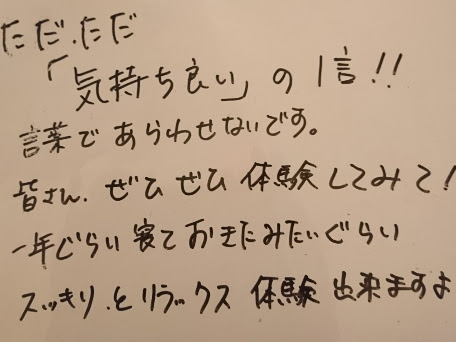 ただ.ただ
「気持ち良い」の1言!!
言葉であらわせないです。
皆さん.ぜひぜひ体験してみて!
一年ぐらい寝ておきたみたいぐらい
スッキリ.とリラックス体験出来ますよ